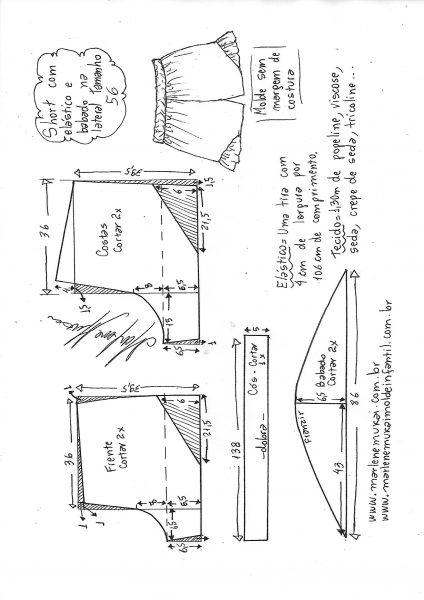 Short com
elástico e
babado na
lateral Tamanho
56
Molde sem
margem de
costura
Elástico=Uma tira com
4 cm de largura por
106 cm de comprimento.
Tecido=1,30m de popeline, viscose,
seda, crepe de seda, tricoline...
36
39,5
1,5
Costas
Cortar 2x
6
21,5
8
9,5
15
1
36
1
39,5
Frente
Cortar 2x
21,5
8
9,5
1
1
138
5
Cós - Cortar
1x
dobra
Franzir
Babado
Cortar 2x
43
86
www.marlenemukai.com.br
www.marlenemukaimoldeinfantil.com.br